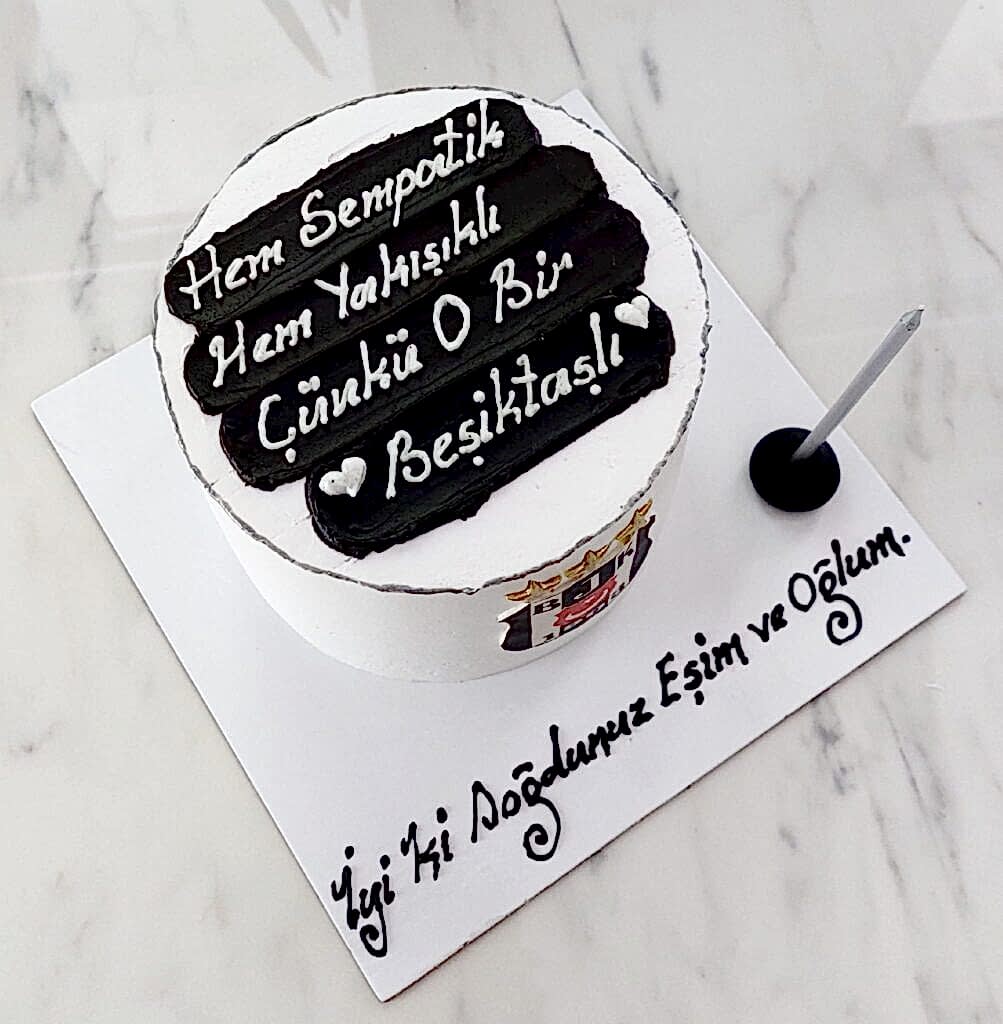 Hem Sempatik
Hem Yakışıklı
Çünkü O Bir
Beşiktaşlı
BJK
İyi ki Doğdunuz Eşim ve Oğlum.